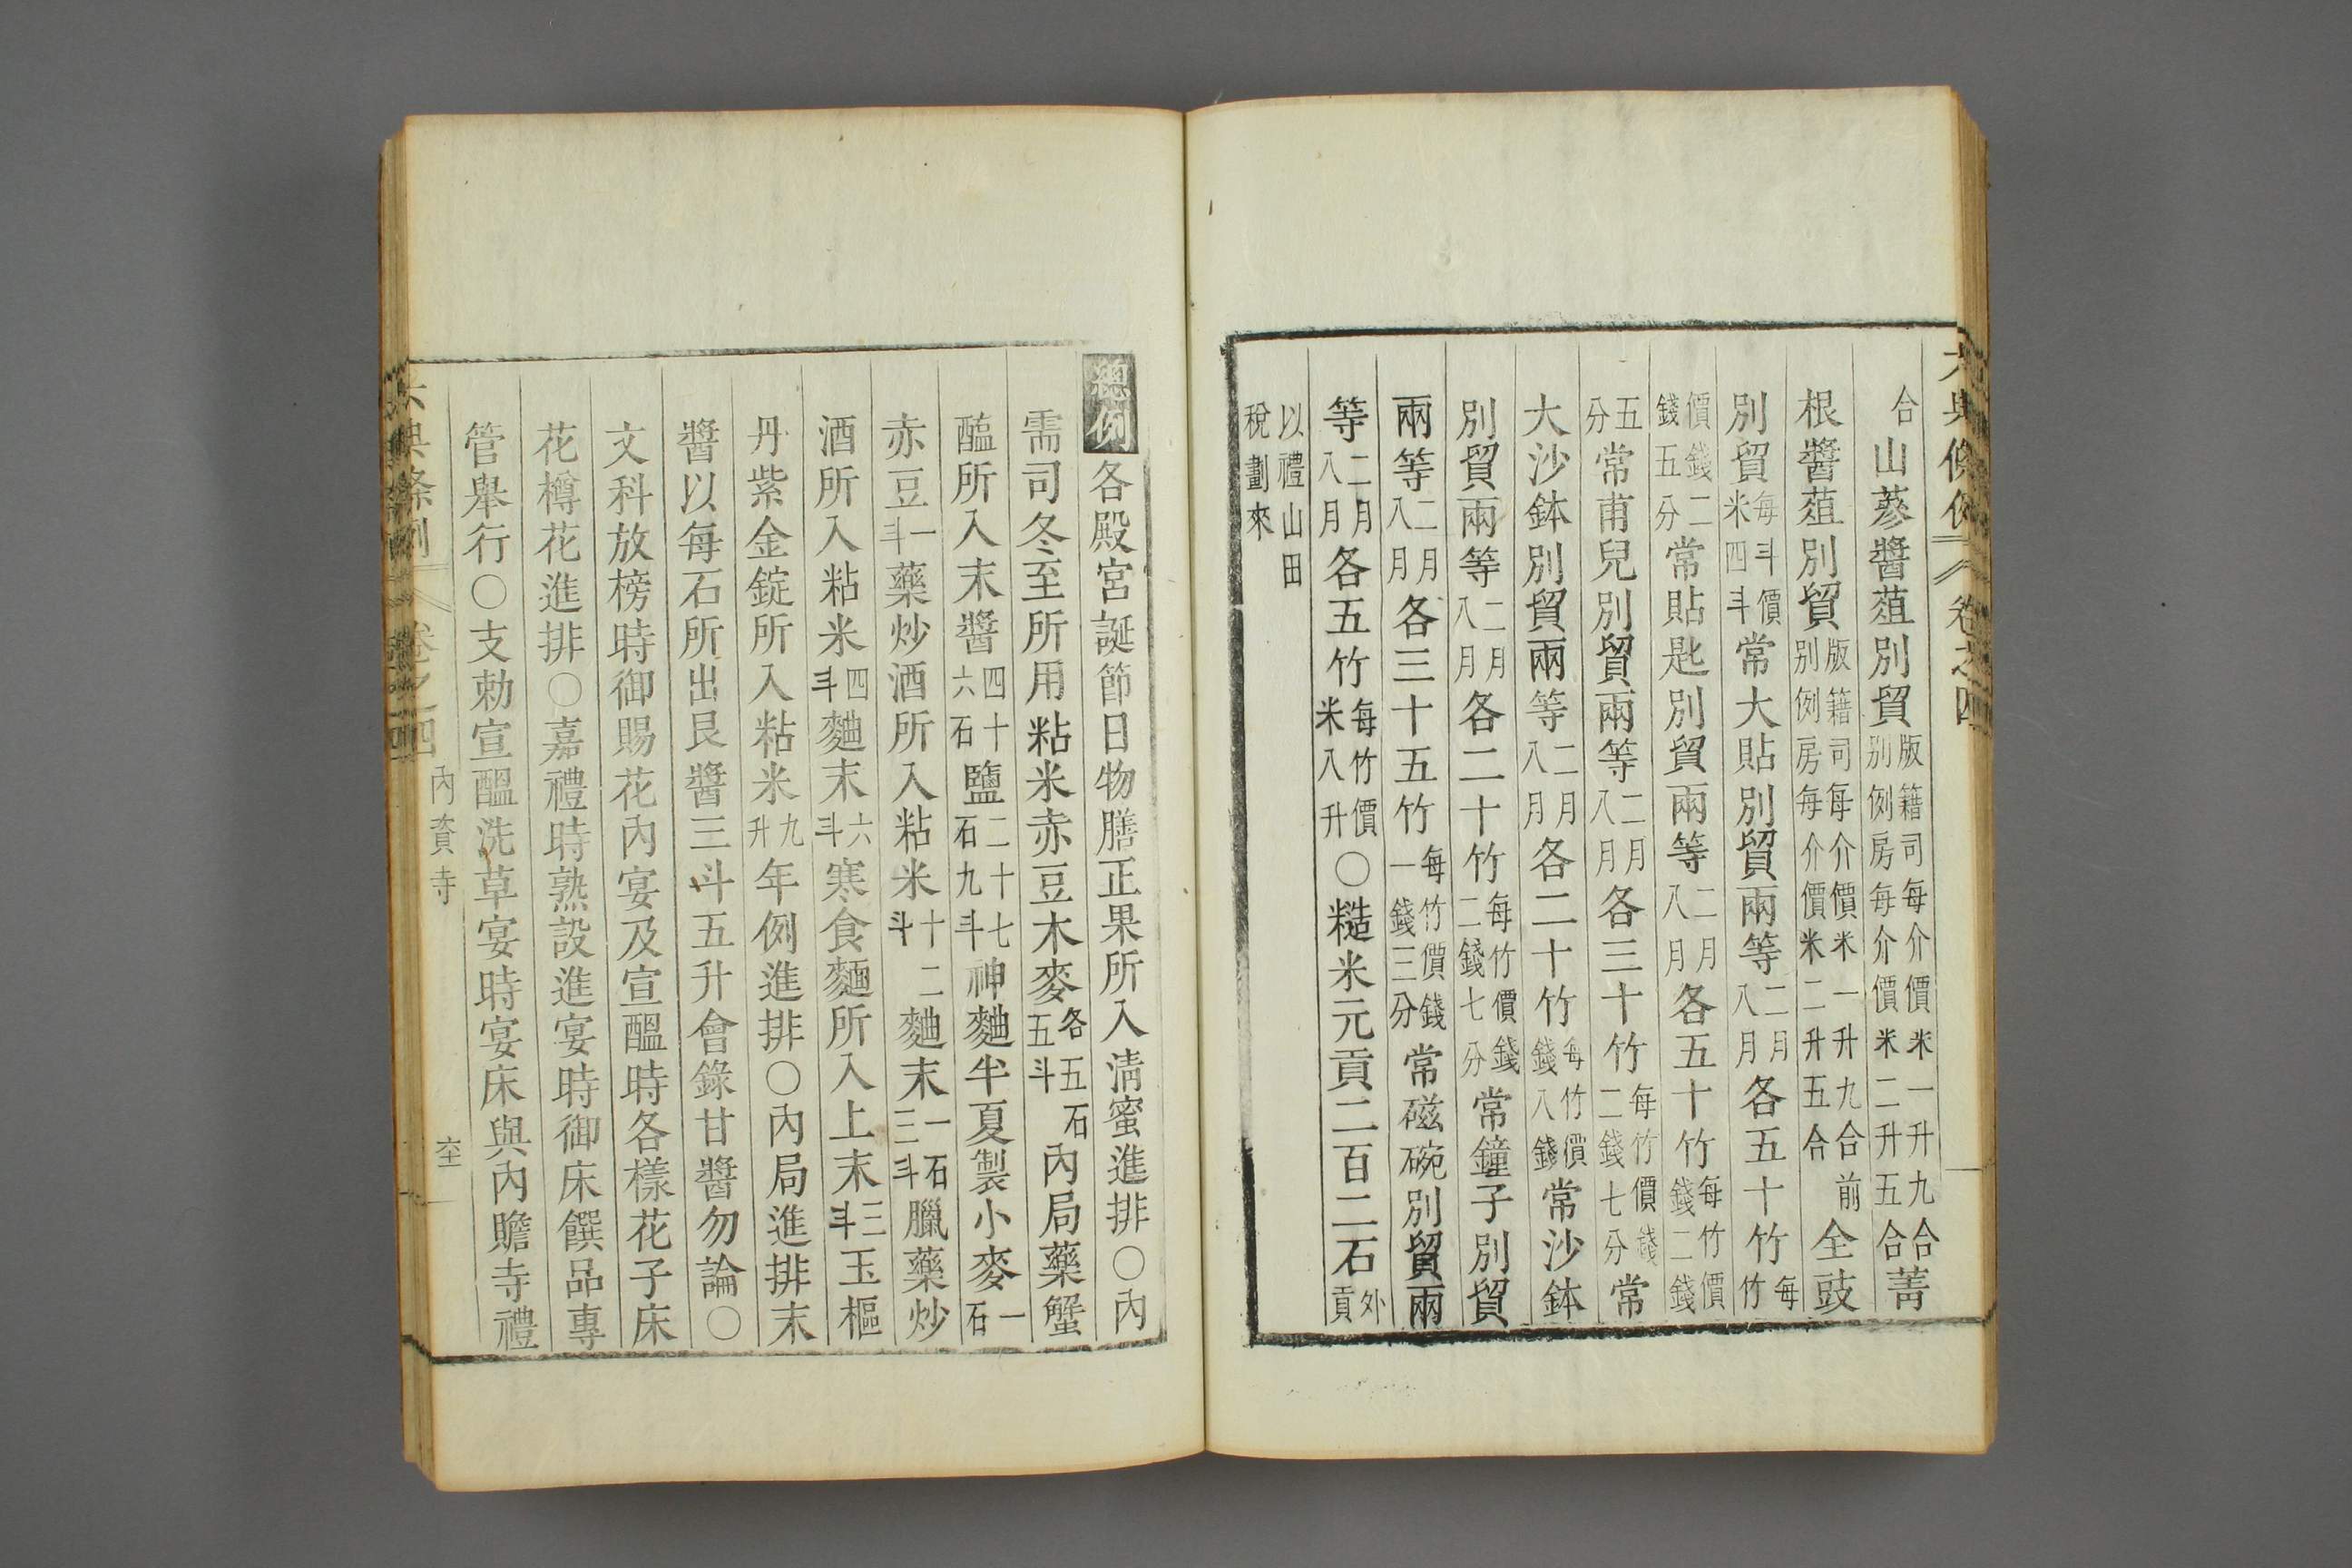 六典條例 卷之四
合山蔘醬葅別貿版籍司每介價米一升九合別例房每介價米二升五合菁
根醬葅別貿版籍司每介價米一升九合前別例房每介價米二升五合全豉
別貿每斗價米四斗常大貼別貿兩等二月八月各五十竹每竹
價錢二錢五分常貼匙別貿兩等二月八月各五十竹每竹價錢二錢
五分常甫兒別貿兩等二月八月各三十竹每竹價錢二錢七分常
大沙鉢別貿兩等二月八月各二十竹每竹價錢八錢常沙鉢
別貿兩等二月八月各二十竹每竹價錢二錢七分常鐘子別貿
兩等二月八月各三十五竹每竹價錢一錢三分常磁碗別貿兩
等二月八月各五竹每竹價米八升○糙米元貢二百二石外貢
以禮山田稅劃來
總例各殿宮誕節日物膳正果所入淸蜜進排○內
需司冬至所用粘米赤豆木麥各五石五斗內局藥蟹
醢所入末醬四十六石鹽二十七石九斗神麯半夏製小麥一石
赤豆一斗藥炒酒所入粘米十二斗麯末一石三斗臘藥炒
酒所入粘米四斗麯末六斗寒食麵所入上末三斗玉樞
丹紫金錠所入粘米九升年例進排○內局進排末
醬以每石所出艮醬三斗五升會錄甘醬勿論○
文科放榜時御賜花內宴及宣醞時各樣花子床
花樽花進排○嘉禮時熟設進宴時御床饌品專
管舉行○支勅宣醞洗草宴時宴床與內贍寺禮
六典條例 卷之四 內資寺 六十一